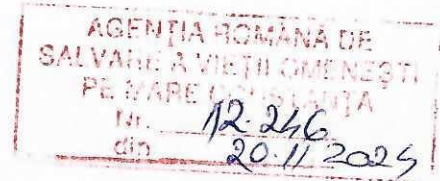 AGENȚIA ROMÂNĂ DE
SALVARE A VIEȚII OMENEȘTI
PE MARE CONSTANȚA
Nr. 12.246
din 20.11.2025